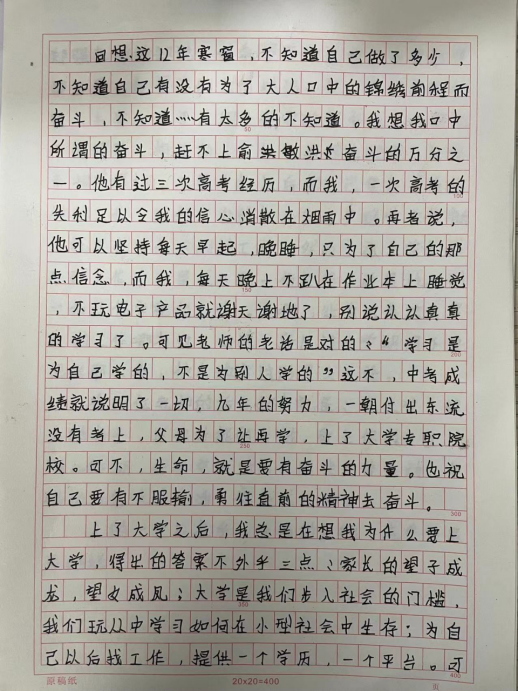 回想这12年寒窗，不知道自己做了多少，
不知道自己有没有为了大人口中的锦绣前程而
奋斗，不知道……有太多的不知道。我想我口中
所谓的奋斗，赶不上俞洪敏洪敏奋斗的万分之
一。他有过三次高考经历，而我，一次高考的
失利足以令我的信心消散在烟雨中。再者说，
他可以坚持每天早起，晚睡，只为了自己的那
点信念，而我，每天晚上不趴在作业本上睡觉
，不玩电子产品就谢天谢地了，别说认认真真
的学习了。可见老师的老话是对的："学习是
为自己学的，不是为别人学的"这不，中考成
绩就说明了一切，九年的努力，一朝付出东流
没有考上，父母为了让再学，上了大学专职院
校。可不，生命，就是要有奋斗的力量。也祝
自己要有不服输，勇往直前的精神去奋斗。
上了大学之后，我总是在想我为什么要上
大学，得出的答案不外乎三点：家长的望子成
龙，望女成凤；大学是我们步入社会的门槛，
我们玩从中学习如何在小型社会中生存；为自
己以后找工作，提供一个学历，一个平台。可
80
100
150
200
250
300
350
400
原稿纸
20×20=400
页